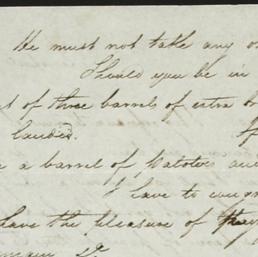 We must not take any
Should you be in
of three barrels of extra
landed.
a barrel of Potatoes and
I have to
have the pleasure of